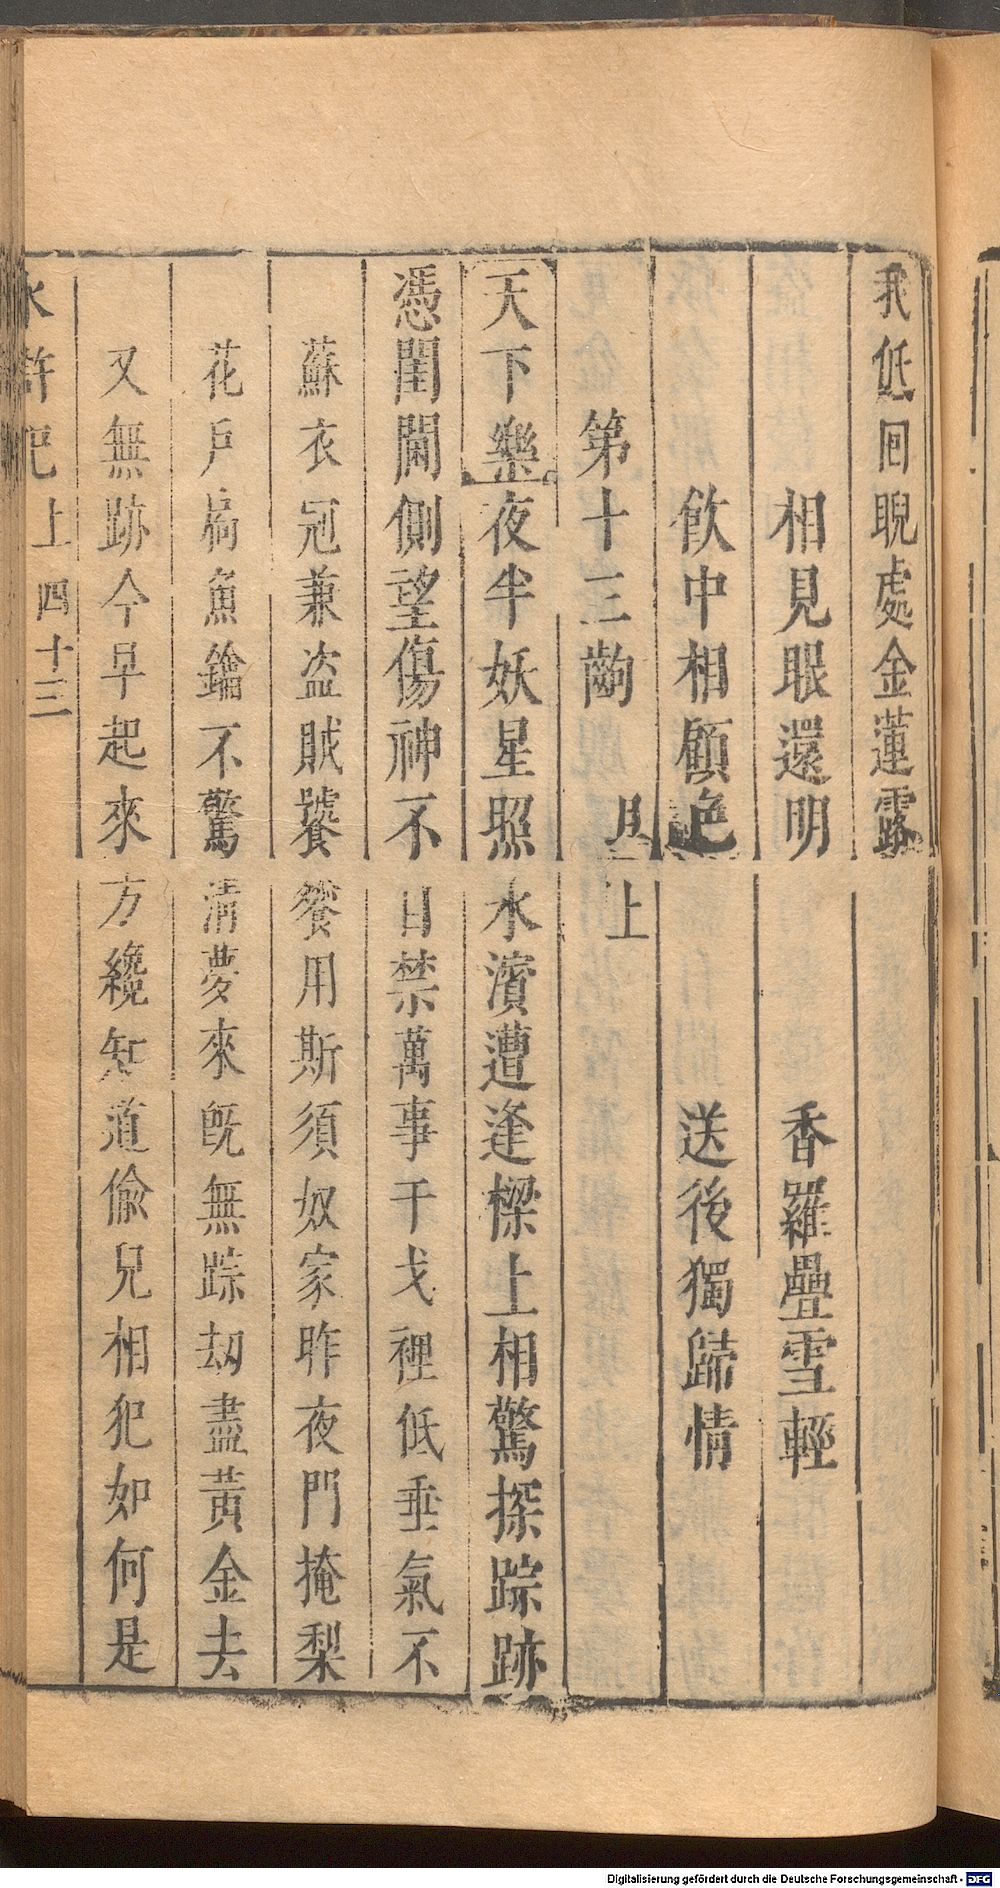 我低回睨處金蓮露
相見眼還明 香羅疊雪輕
飲中相顧色 送後獨歸情
第十三齣 月上
天下樂夜半妖星照水濱遭逢樑上相驚探踪跡
憑閨閫側望傷神不日禁萬事干戈裡低垂氣不
蘇衣冠兼盗賊饕餮用斯須奴家昨夜門掩梨
花戶扃魚鑰不驚清夢來旣無踪劫盡黃金去
又無跡今早起來方纔知道偸兒相犯如何是
水滸記上 四十三
Digitalisierung gefördert durch die Deutsche Forschungsgemeinschaft - DFG